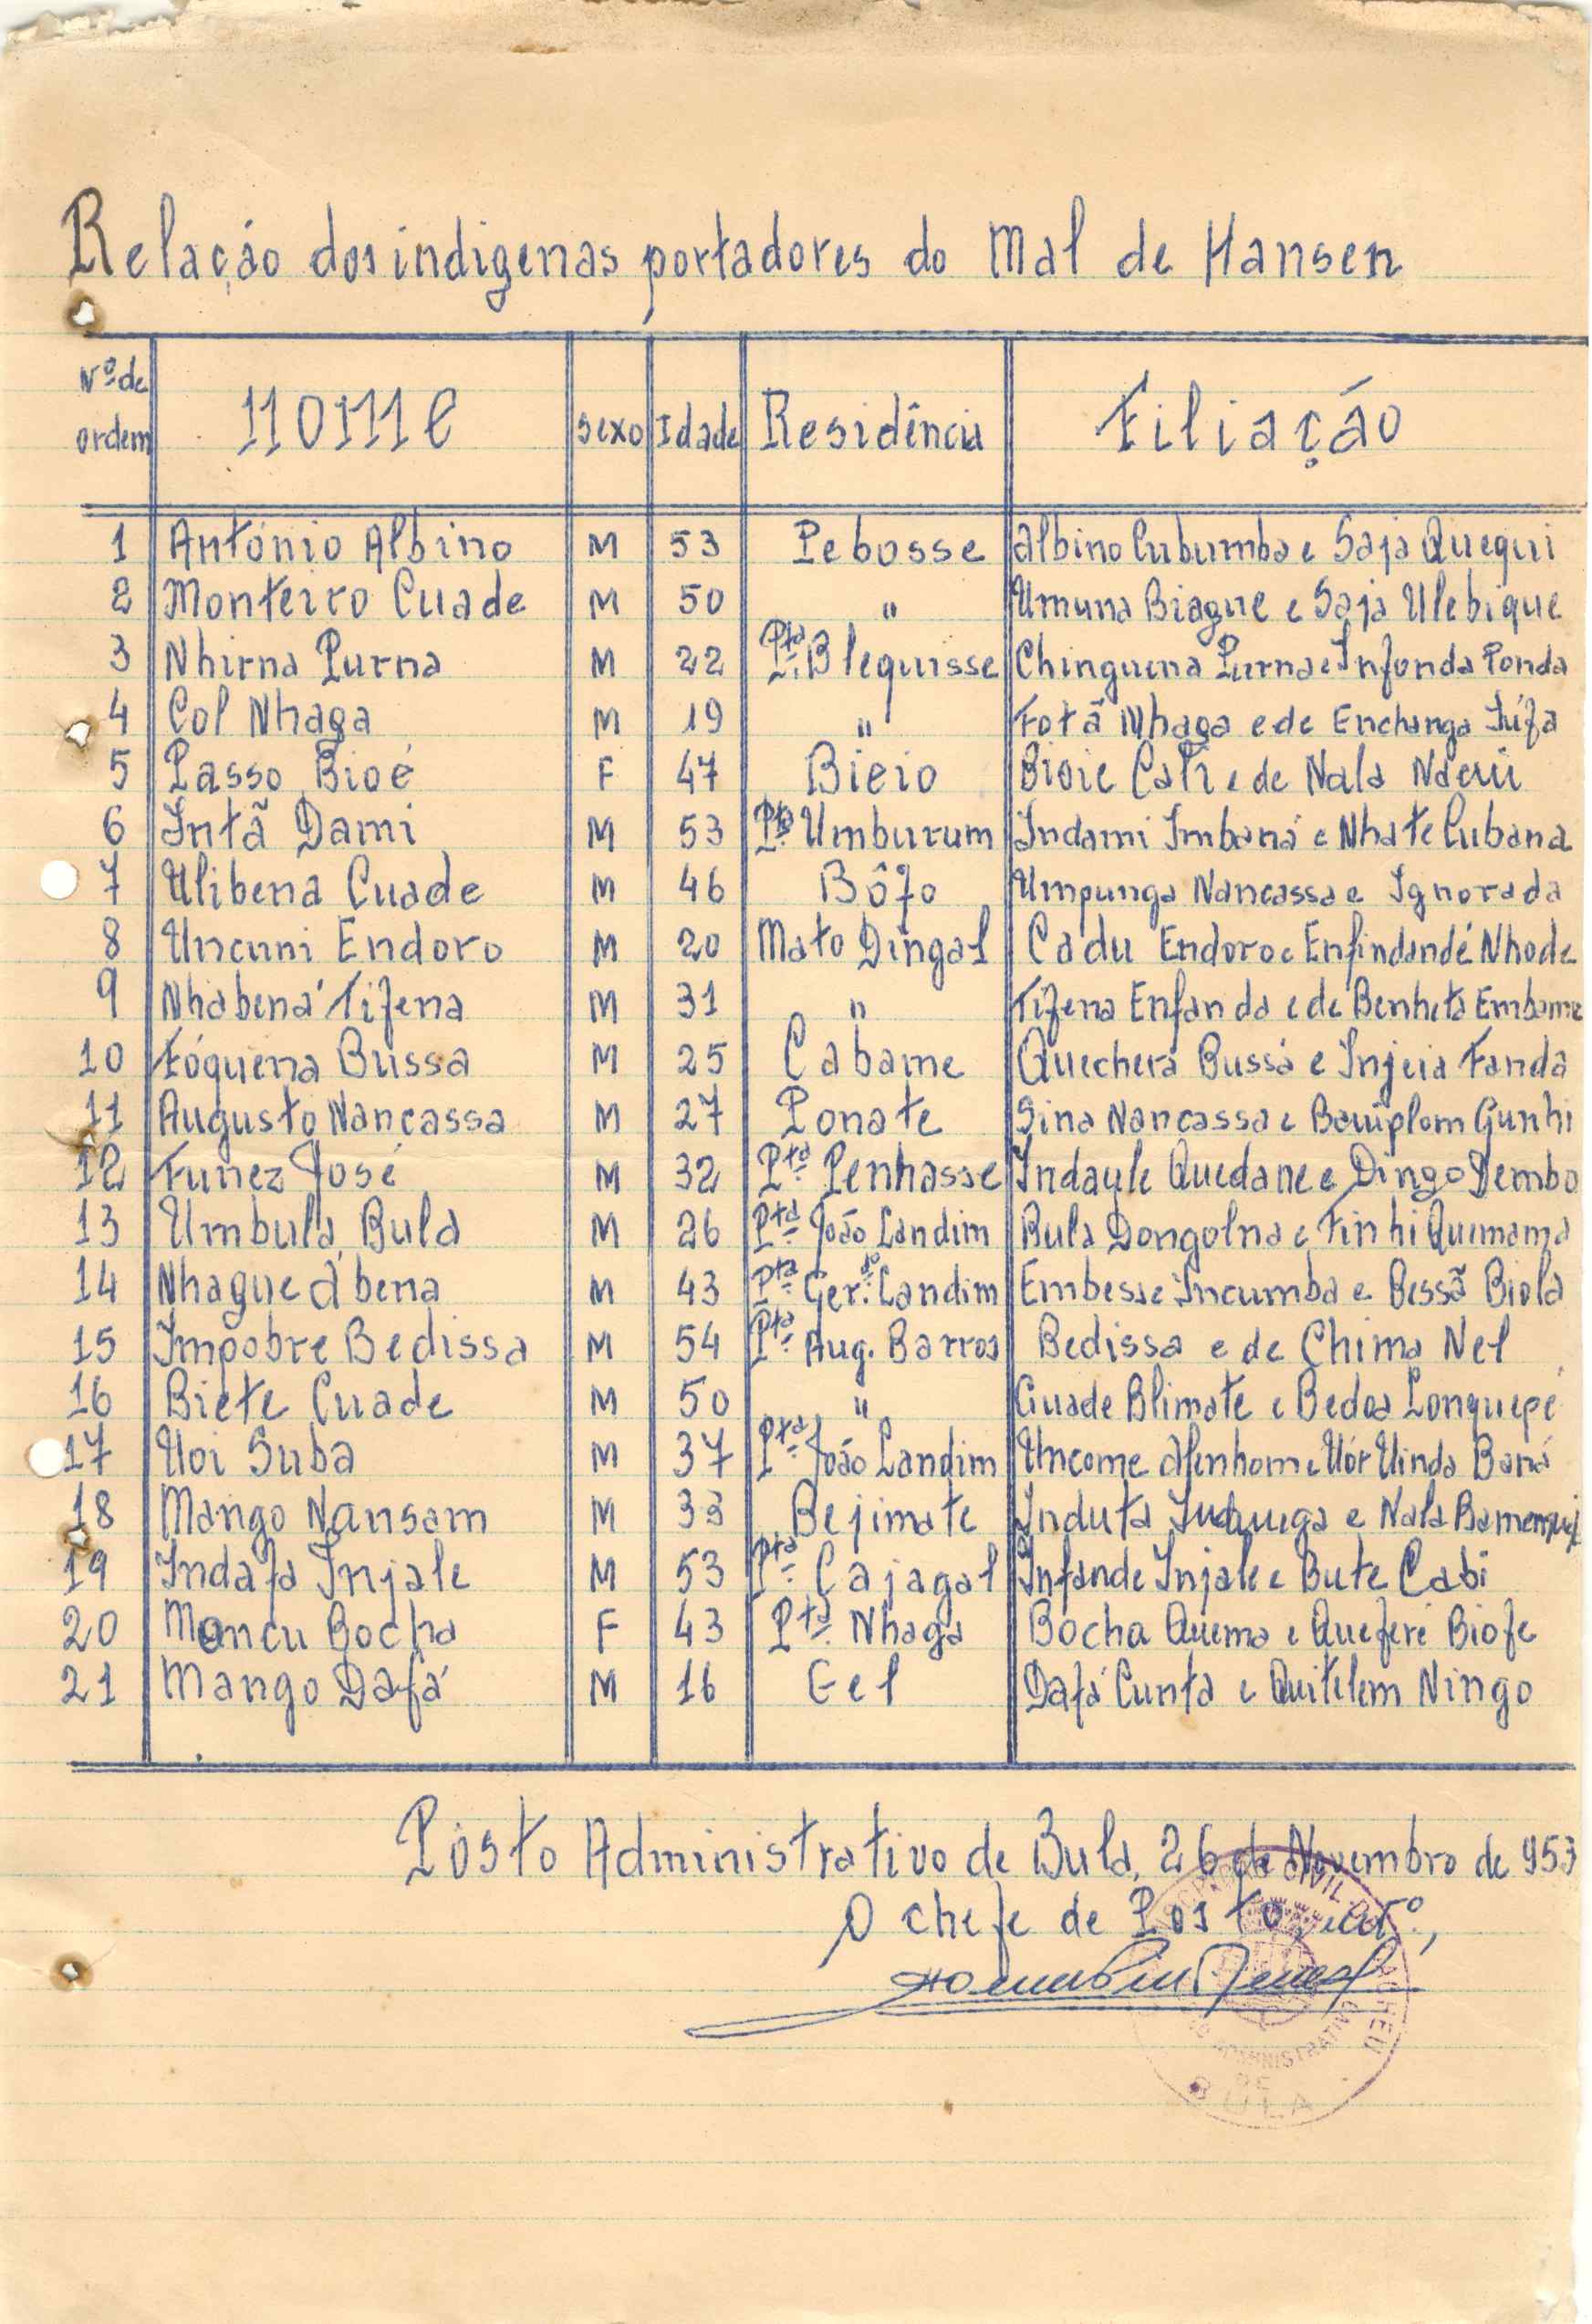 Relação dos indigenas portadores do Mal de Hansen
Nº de ordem nome sexo Idade Residência Filiação
1 António Albino M 53 Pebosse Albino Cubumba e Saja Quequi
2 Monteiro Cuade M 50 " Umuna Biague e Saja Ulebique
3 Nhirna Purna M 22 Pta. Blequisse Chinguena Purna e Infonda Ponda
4 Col Nhaga M 19 " Fotã Nhaga e de Enchanga Iúfa
5 Passo Bioé F 47 Bieio Bioie Cati e de Nala
6 Intã Dami M 53 Pta. Umburum Indami Imbaná e Nhate Cubana
7 Ulibena Cuade M 46 Bôfo Umpunga Nancassa e Ignorada
8 Uncuni Endoro M 20 Mato Dingal Cadu Endoro e Enfindandé Nhode
9 Nhabená Tifena M 31 " Tifena Enfanda e de Benhetá Embame
10 Fóquena Bussa M 25 Cabame Quecherá Bussá e Injeia Fanda
11 Augusto Nancassa M 27 Ponate Sina Nancassa e Gunhi
12 Funez José M 32 Pta. Penhasse Indayle Quedane e Dingo Dembo
13 Umbula Bula M 26 Pta. João Landim Bula Dongolna e Finhi Quemama
14 Nhague Abena M 43 Pta. Ger.do Landim Embesse Incumba e Bessã Biola
15 Impobre Bedissa M 54 Pta. Aug. Barros Bedissa e de Chima Nel
16 Biete Cuade M 50 " Cuade Blimate e Bedoa Longuepé
17 Uoi Suba M 37 Pta. João Landim Uncome Afenhom e Uór Uinda Baná
18 Mango Nansam M 33 Bejimate Induta e Nala
19 Indafa Injale M 53 Pta. Cajagal Infande Injale e Bute Cabi
20 Moncu Bocha F 43 Pta. Nhaga Bocha Quema e Queferé Biofe
21 Mango Dafá M 16 Gel Dafá Cunta e Quitelem Ningo
Pôsto Administrativo de Bula, 26 de Novembro de 953
O chefe de Posto
BULA